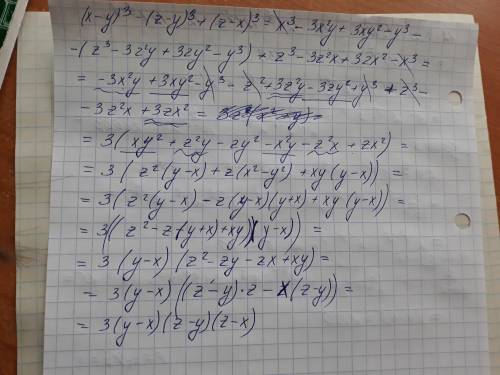 (x-y)³ - (z-y)³ + (z-x)³ = x³ - 3x²y + 3xy² - y³ -
- (z³ - 3z²y + 3zy² - y³) + z³ - 3z²x + 3zx² - x³ =
= -3x²y + 3xy² - y³ - z² + 3z²y - 3zy² + y³ + z³ -
- 3z²x + 3zx² =
= 3(xy² + z²y - zy² - x²y - z²x + zx²) =
= 3(z²(y-x) + z(x²-y²) + xy(y-x)) =
= 3(z²(y-x) - z(y-x)(y+x) + xy(y-x)) =
= 3((z² - z(y+x) + xy)(y-x)) =
= 3(y-x)(z² - zy - zx + xy) =
= 3(y-x)((z-y)·z - x(z-y)) =
= 3(y-x)(z-y)(z-x)